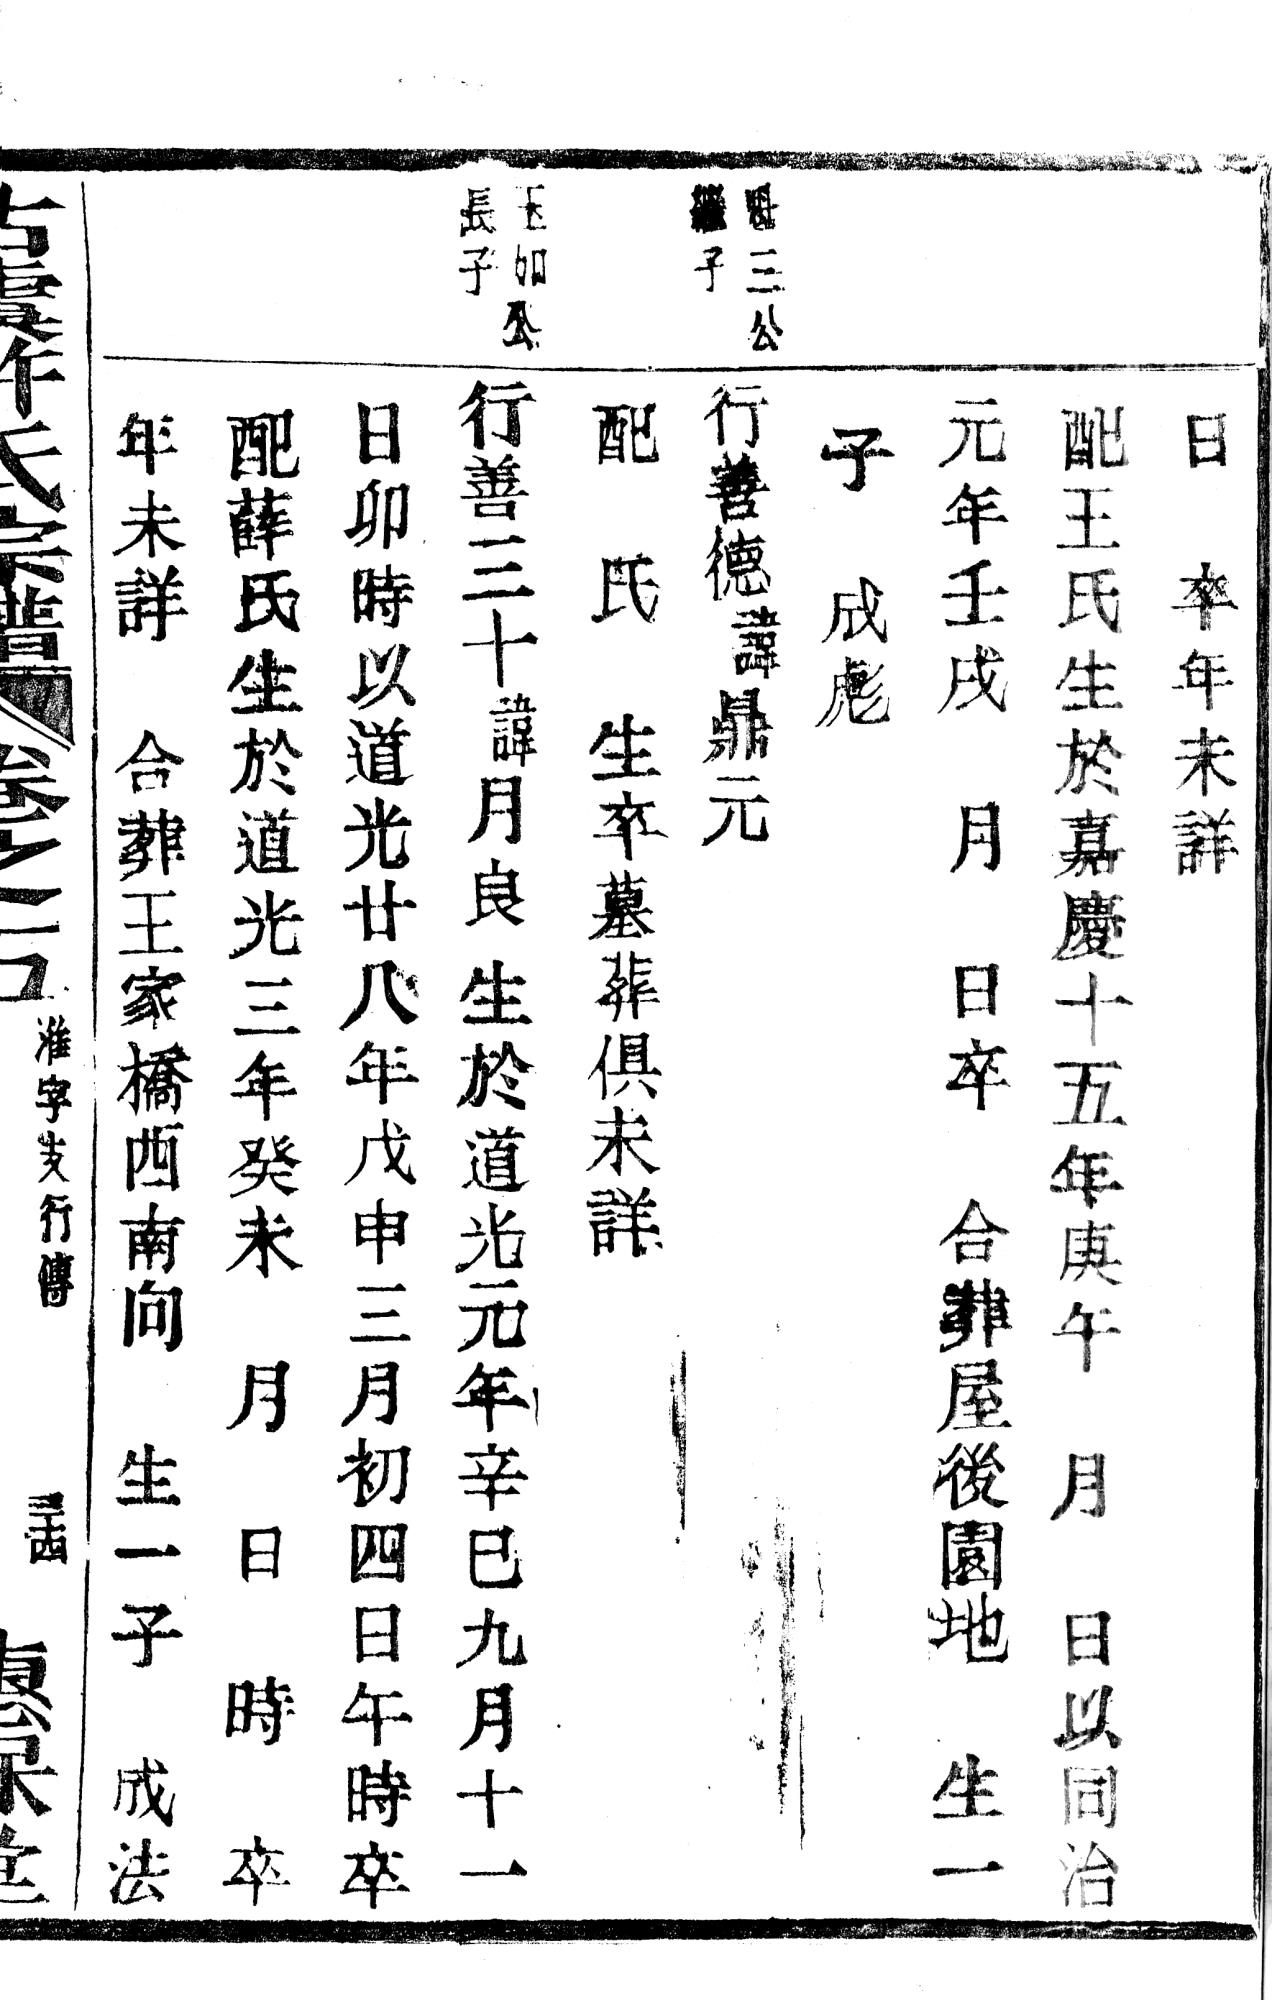 日　卒年未詳
配王氏生於嘉慶十五年庚午　月　日以同治
元年壬戌　月　日卒　合葬屋後園地　生一
子　成彪
魁三公
繼子
行善德諱鼎元
配　氏　生卒墓葬俱未詳
玉如公
長子
行善三十諱月良　生於道光元年辛巳九月十一
日卯時以道光廿八年戊申三月初四日午時卒
配薛氏生於道光三年癸未　月　日　時　卒
年未詳　合葬王家橋西南向　生一子　成法
古虞許氏宗譜　卷之二
淮字支行傳
惠保堂